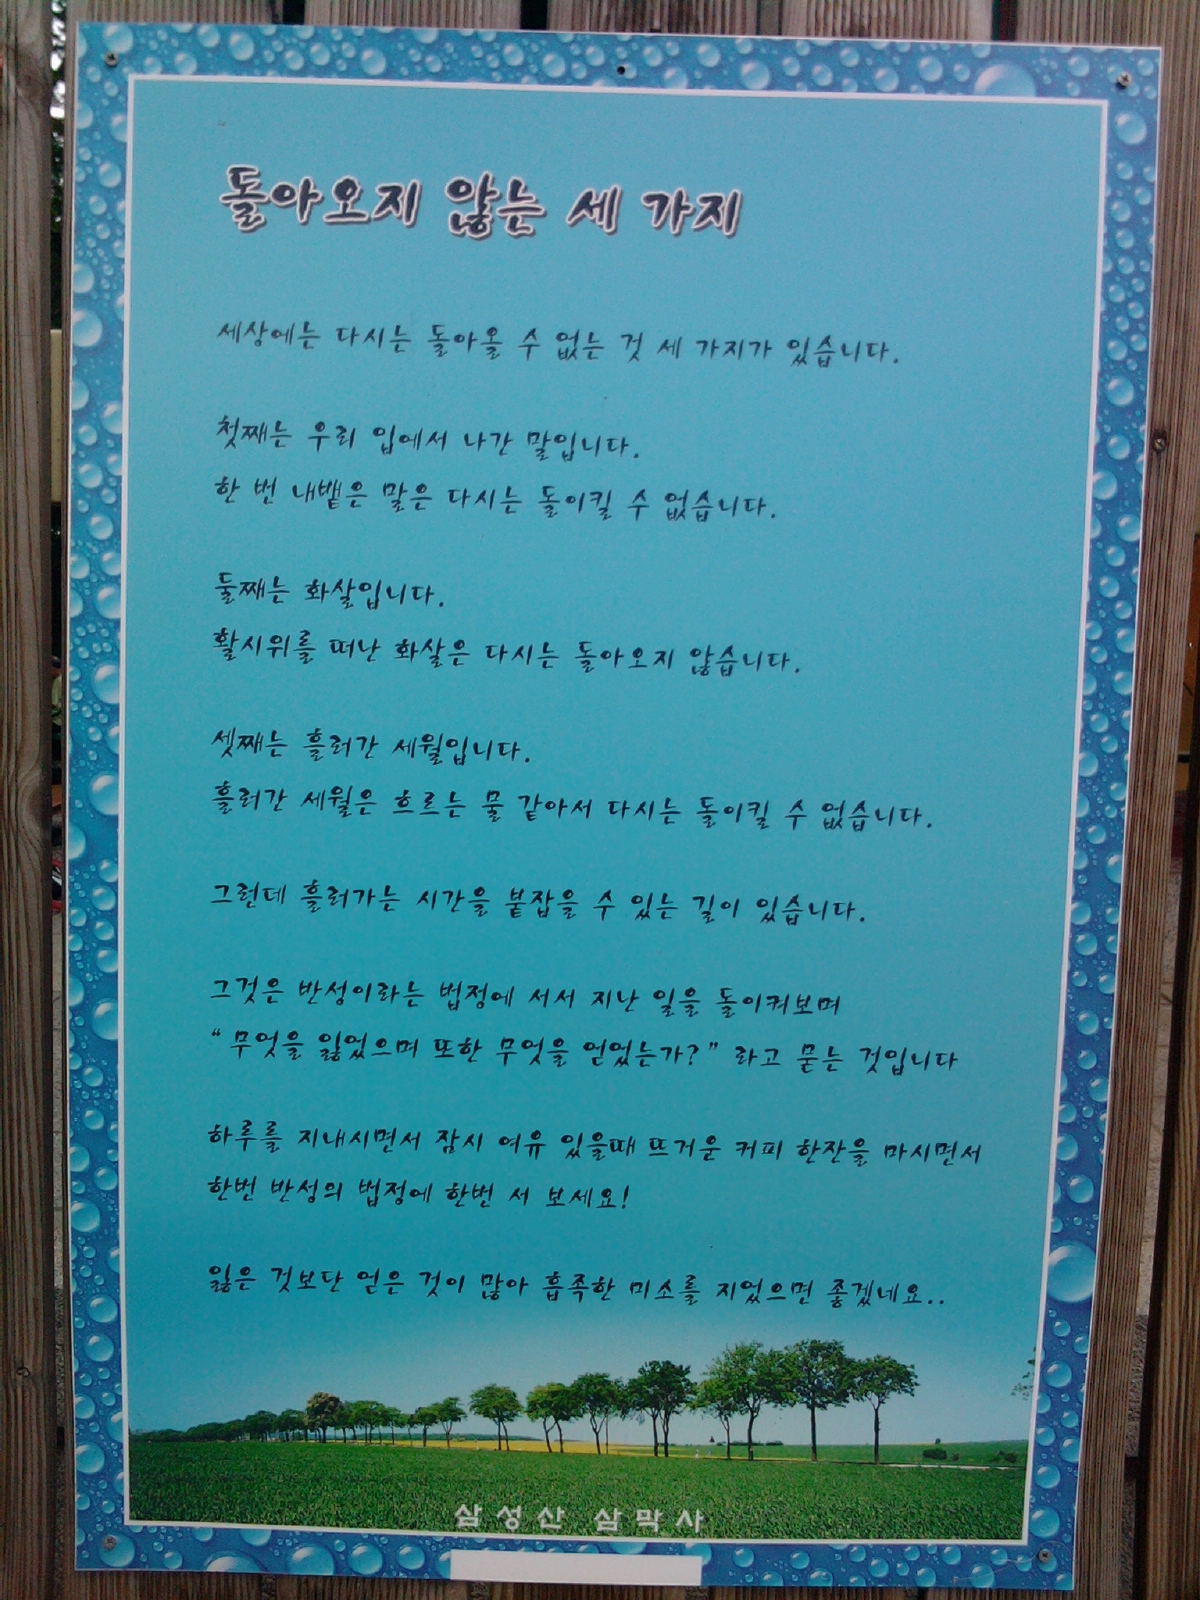 돌아오지 않는 세 가지
세상에는 다시는 돌아올 수 없는 것 세 가지가 있습니다.
첫째는 우리 입에서 나간 말입니다.
한 번 내뱉은 말은 다시는 돌이킬 수 없습니다.
둘째는 화살입니다.
활시위를 떠난 화살은 다시는 돌아오지 않습니다.
셋째는 흘러간 세월입니다.
흘러간 세월은 흐르는 물 같아서 다시는 돌이킬 수 없습니다.
그런데 흘러가는 시간을 붙잡을 수 있는 길이 있습니다.
그것은 반성이라는 법정에 서서 지난 일을 돌이켜보며
“무엇을 잃었으며 또한 무엇을 얻었는가?” 라고 묻는 것입니다
하루를 지내시면서 잠시 여유 있을때 뜨거운 커피 한잔을 마시면서
한번 반성의 법정에 한번 서 보세요!
잃은 것보단 얻은 것이 많아 흡족한 미소를 지었으면 좋겠네요..
삼성산 삼막사